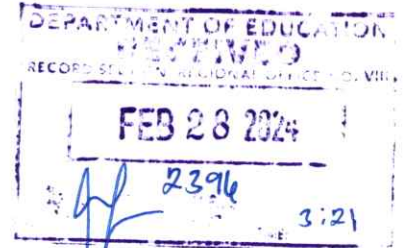 DEPARTMENT OF EDUCATION
RECEIVED
RECORD SECTION, REGIONAL OFFICE NO. VIII
FEB 28 2024
2396
3:21